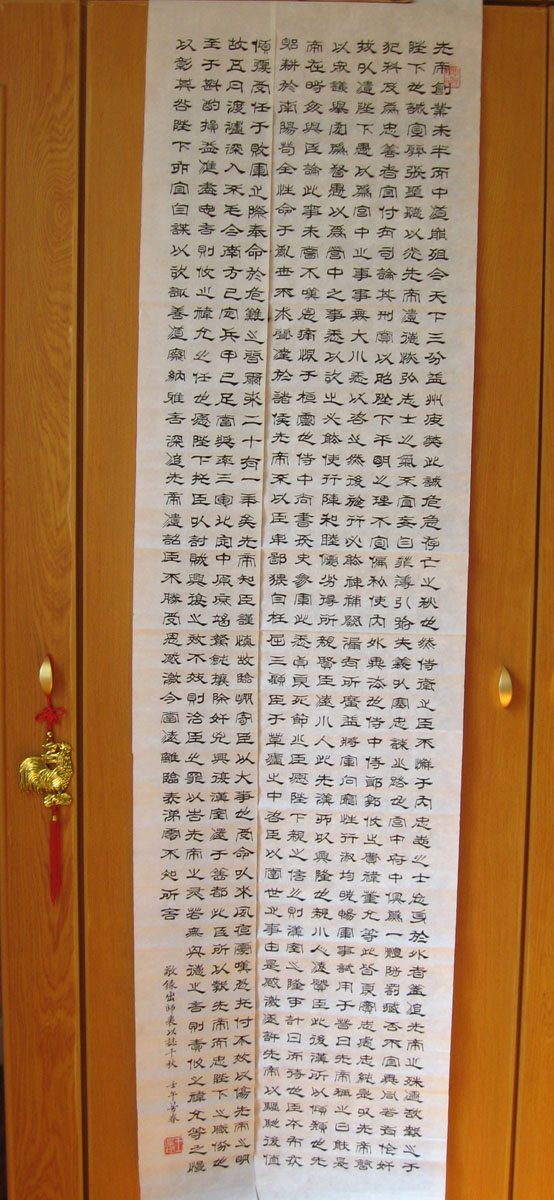 先帝創業未半而中道崩殂今天下三分益州疲弊此誠危急存亡之秋也然侍衛之臣不懈于內忠志之士忘身於外者蓋追先帝之殊遇欲報之于
陛下也誠宜開張聖聽以光先帝遺德恢弘志士之氣不宜妄自菲薄引喻失義以塞忠諫之路也宮中府中俱為一體陟罰臧否不宜異同若有作奸
犯科及為忠善者宜付有司論其刑賞以昭陛下平明之理不宜偏私使內外異法也侍中侍郎郭攸之費禕董允等此皆良實志慮忠純是以先帝簡
拔以遺陛下愚以為宮中之事事無大小悉以咨之然後施行必能裨補闕漏有所廣益將軍向寵性行淑均曉暢軍事試用于昔日先帝稱之曰能是
以眾議舉寵為督愚以為營中之事悉以咨之必能使行陣和睦優劣得所親賢臣遠小人此先漢所以興隆也親小人遠賢臣此後漢所以傾頹也先
帝在時每與臣論此事未嘗不嘆息痛恨于桓靈也侍中尚書長史參軍此悉貞良死節之臣願陛下親之信之則漢室之隆可計日而待也臣本布衣
躬耕於南陽苟全性命于亂世不求聞達於諸侯先帝不以臣卑鄙猥自枉屈三顧臣于草廬之中咨臣以當世之事由是感激遂許先帝以驅馳後值
傾覆受任于敗軍之際奉命於危難之間爾來二十有一年矣先帝知臣謹慎故臨崩寄臣以大事也受命以來夙夜憂嘆恐託付不效以傷先帝之明
故五月渡瀘深入不毛今南方已定兵甲已足當獎率三軍北定中原庶竭駑鈍攘除奸凶興復漢室還于舊都此臣所以報先帝而忠陛下之職份也
至于斟酌損益進盡忠言則攸之禕允之任也願陛下託臣以討賊興復之效不效則治臣之罪以告先帝之靈若無興德之言則責攸之禕允等之慢
以彰其咎陛下亦宜自謀以咨諏善道察納雅言深追先帝遺詔臣不勝受恩感激今當遠離臨表涕零不知所言
敬錄出師表以誌千秋 壬午芳春